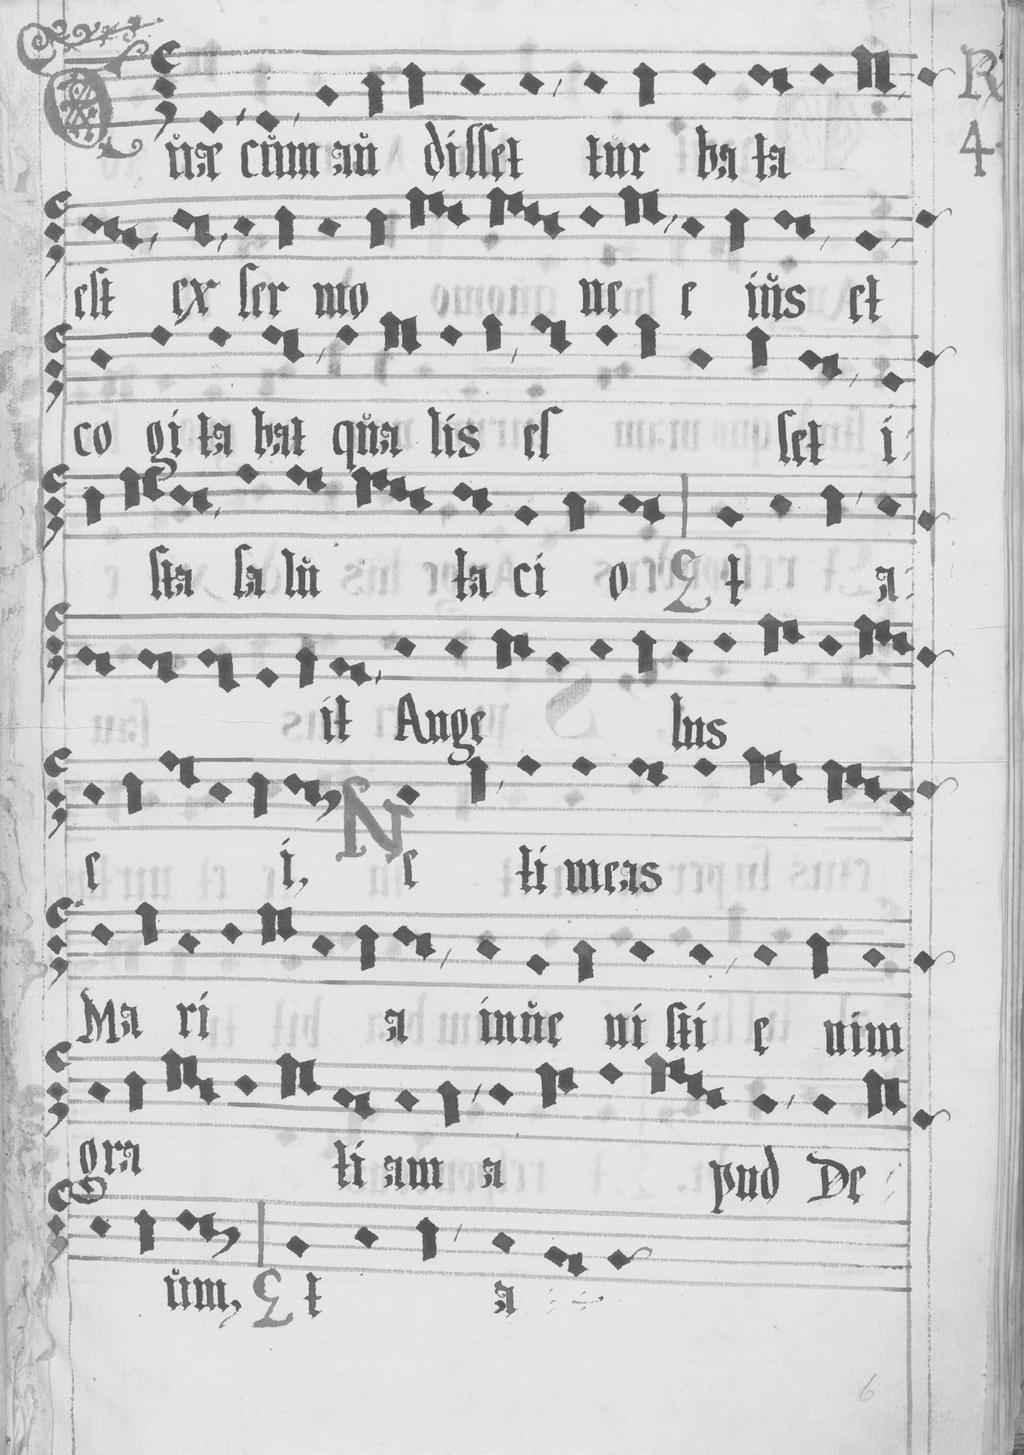 R
4
Qŭæ cŭm aŭ disset tŭr ba ta
est ex ser mo ne e iŭs et
co gi ta bat qŭa lis es set i
sta sa lŭ ta ci o Et a
it Ange lus
e i, Ne ti meas
Ma ri a inŭe ni sti e nim
gra ti am a pud De
ŭm, Et a
6